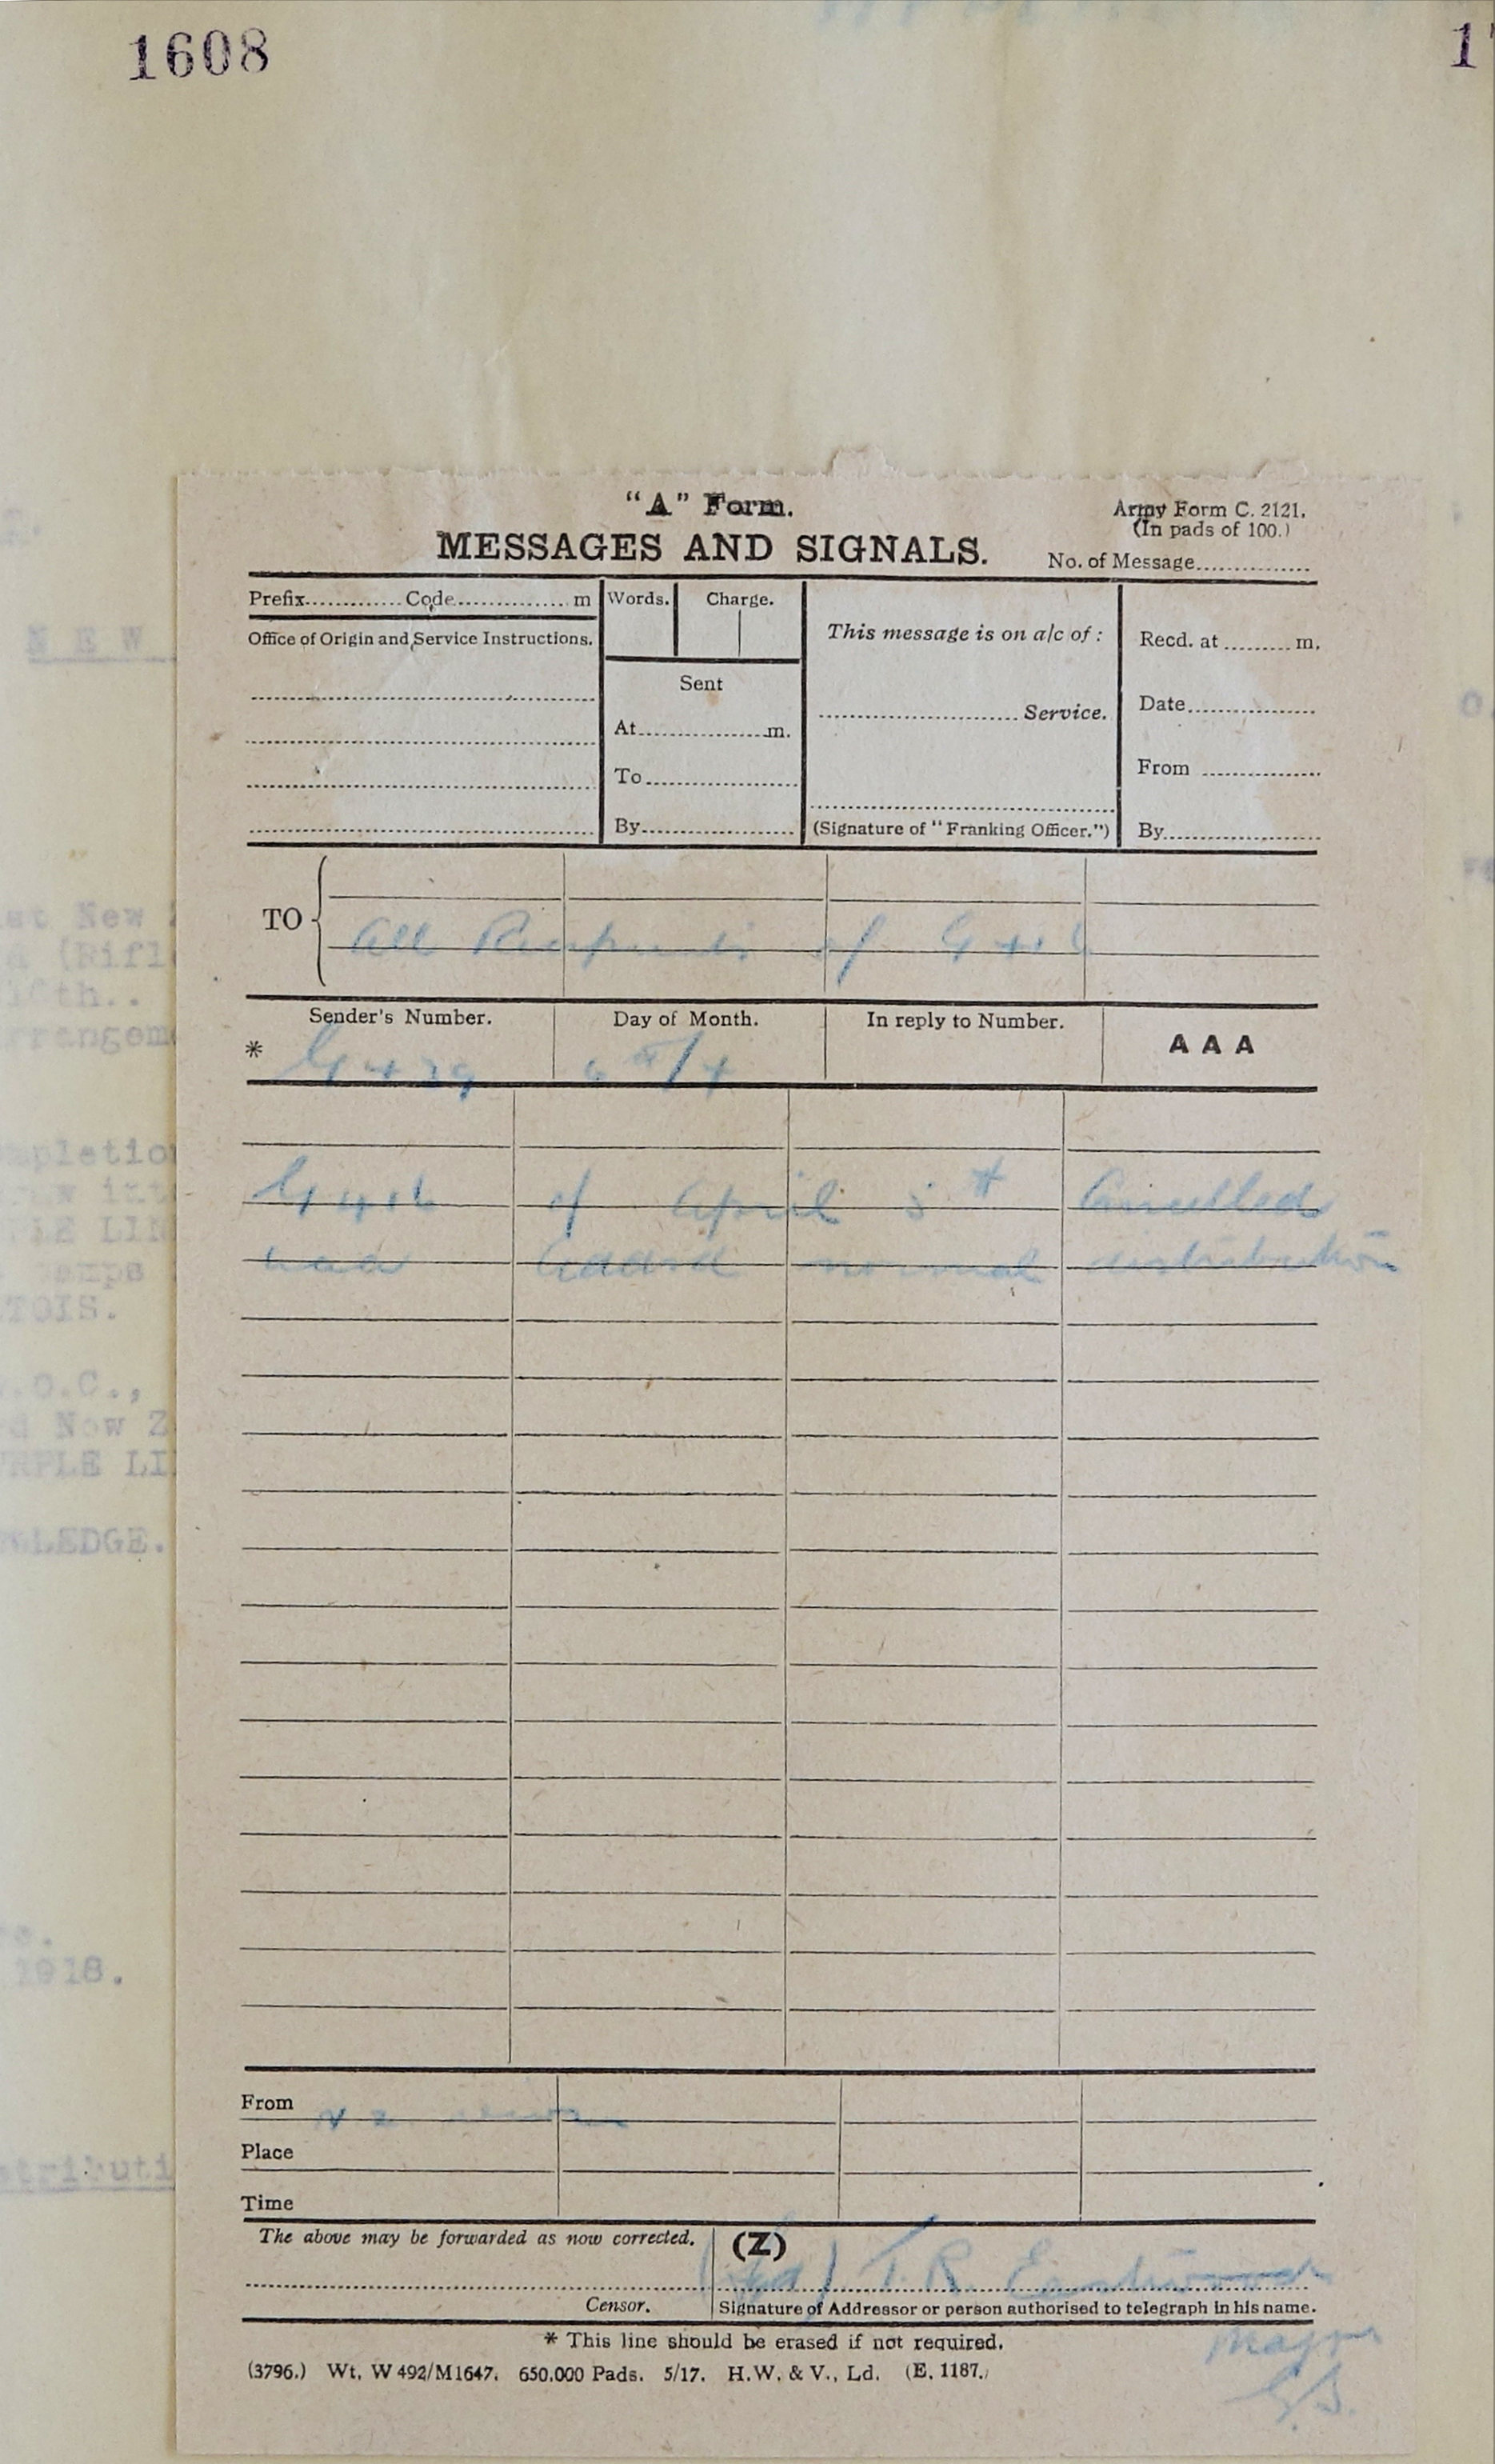 1608
"A" Form.
Army Form C. 2121.
(In pads of 100.)
MESSAGES AND SIGNALS.
No. of Message
Prefix Code m
Words. Charge.
This message is on a/c of :
Recd. at m.
Office of Origin and Service Instructions.
Sent
At m.
Service.
Date
To
From
By
(Signature of "Franking Officer.")
By
TO
All Recipients of G 416
Sender's Number. Day of Month. In reply to Number. A A A
* G 439 6th/4
G 416 of April 5th Cancelled
aaa Addsd normal distribution
From N Z
Place
Time
The above may be forwarded as now corrected. (Z)
(sgd) T.R. Eastwood
Censor. Signature of Addressor or person authorised to telegraph in his name.
* This line should be erased if not required.
Major
(3796.) Wt. W 492/M1647. 650,000 Pads. 5/17. H.W. & V., Ld. (E. 1187.)
G.S.
N E W
(Rifl
LEDGE.
1918.